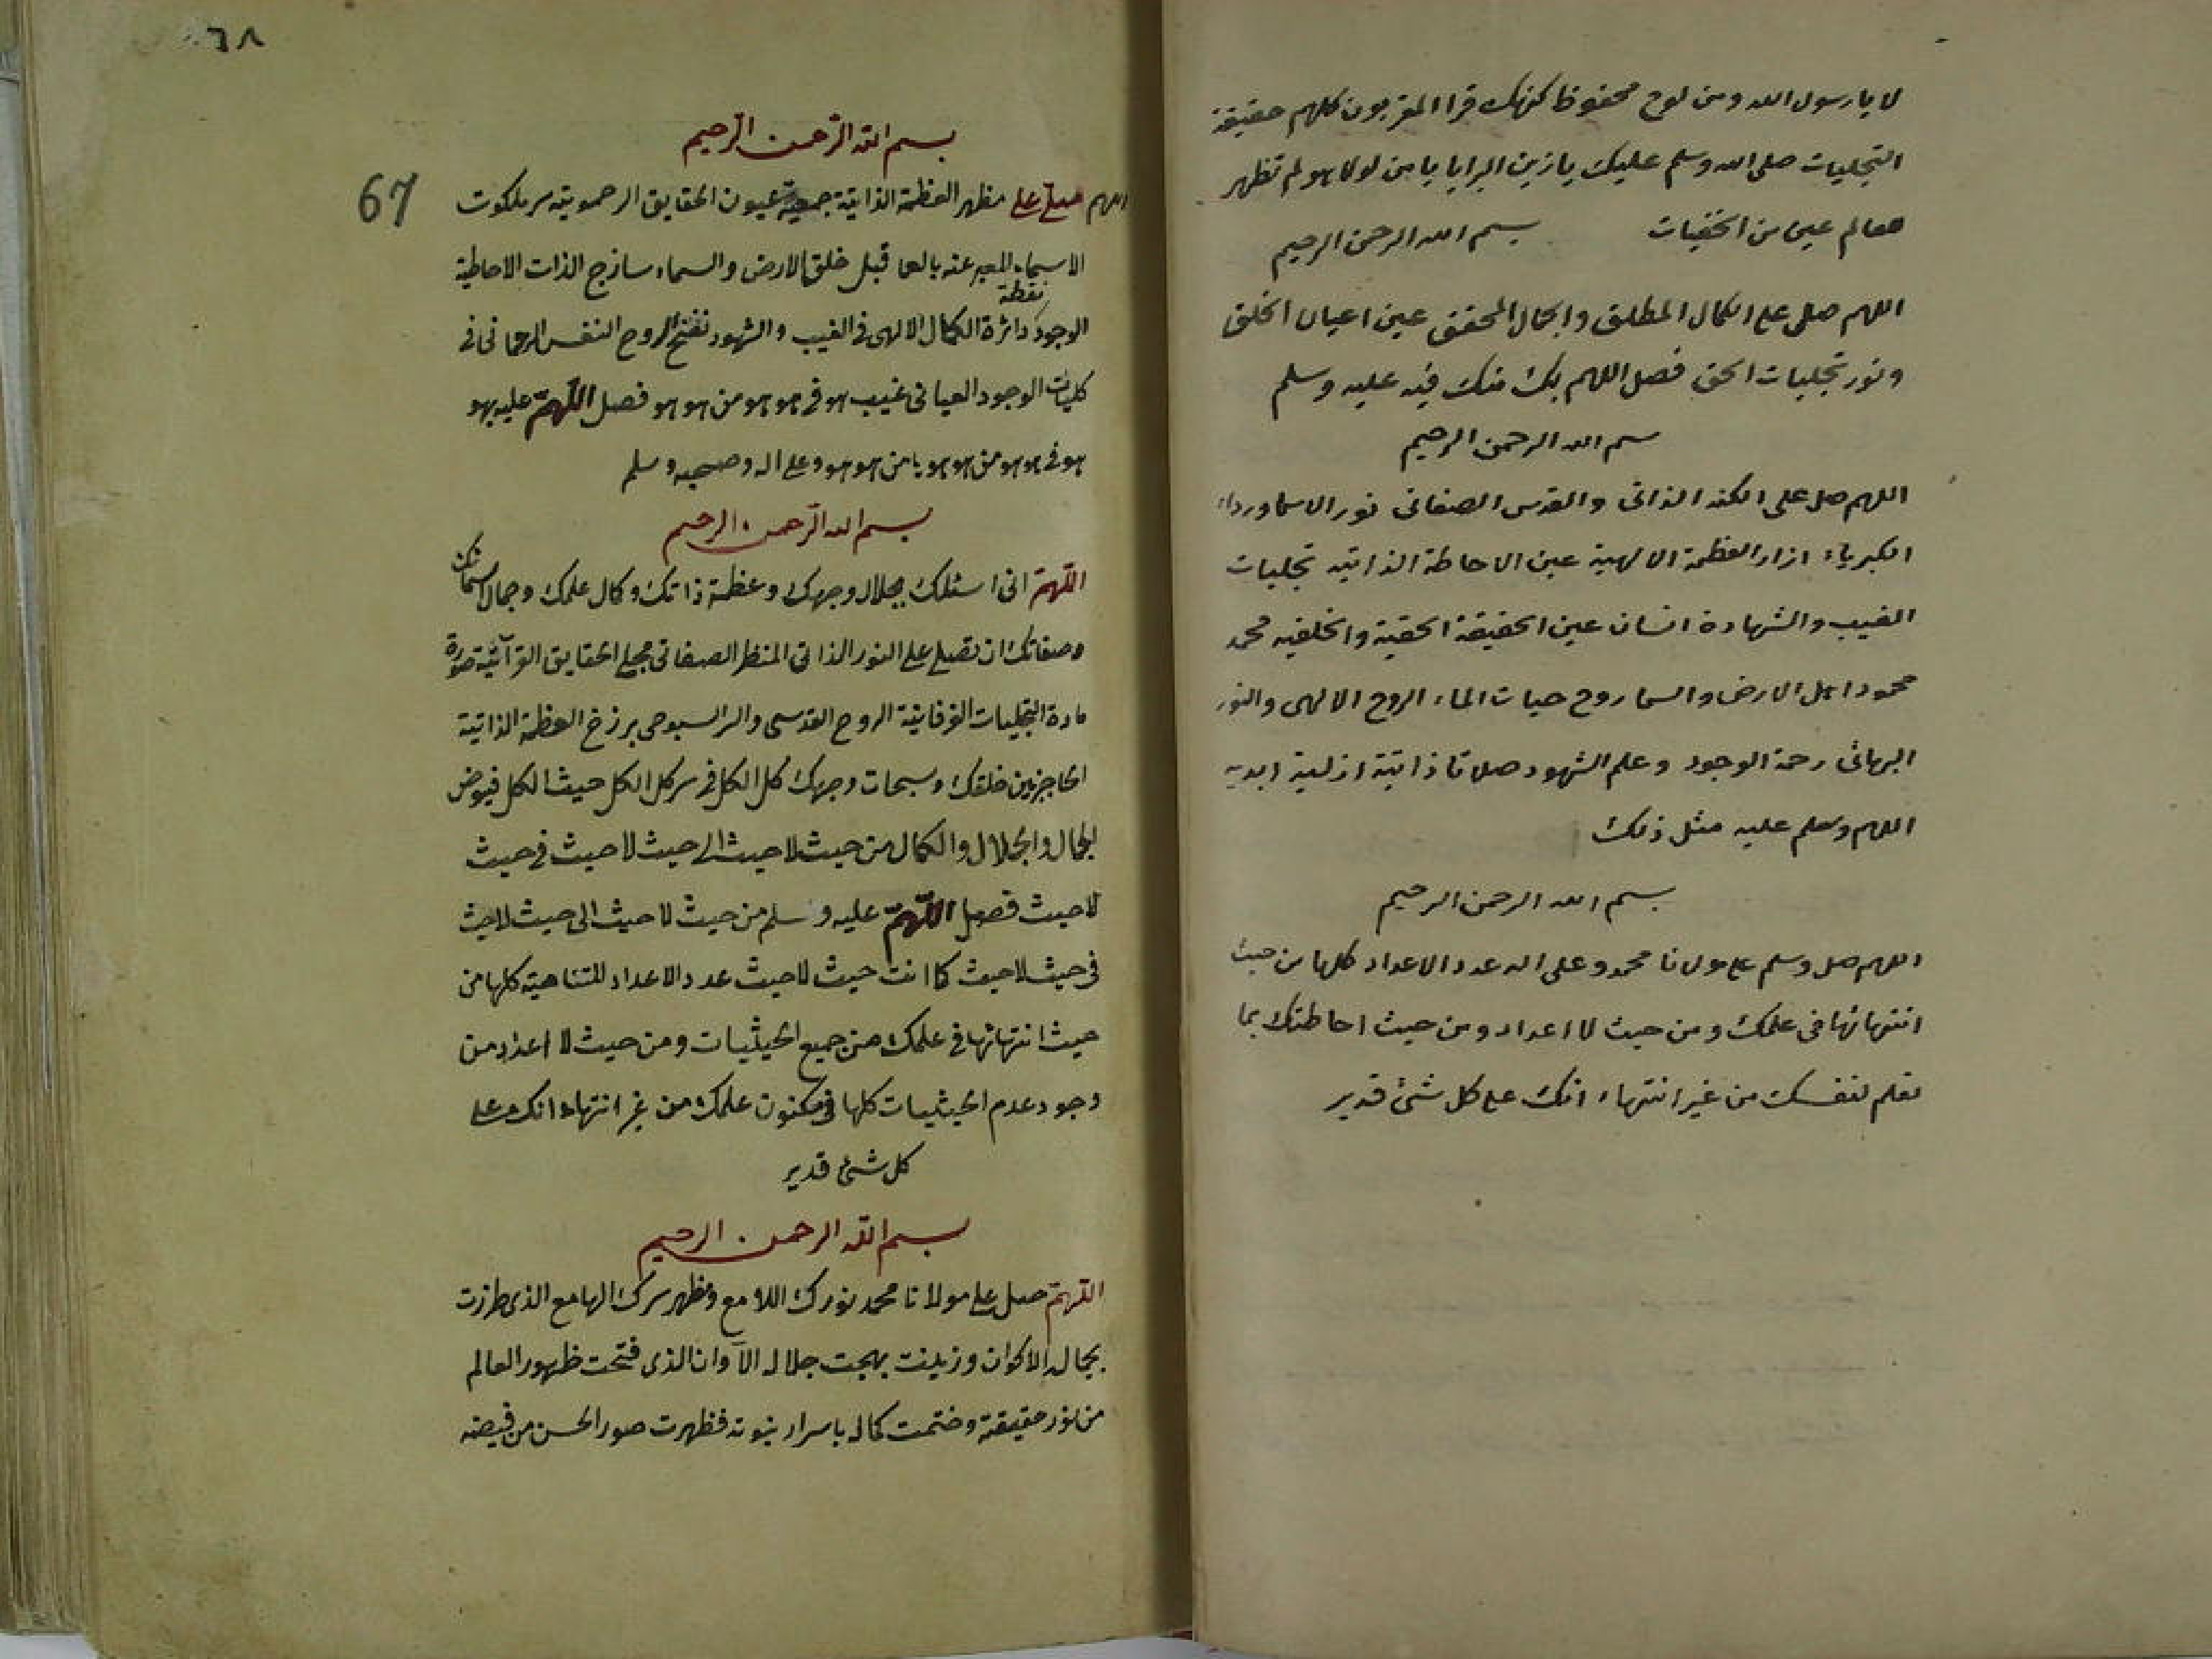 لا يا رسول الله ومن لوح محفوظ كنهك قرا المقربون كلهم حقيقة
التجليات صلى الله وسلم عليك يا زين البرايا يا من لولا هو لم تظهر
معالم عين من الخفيات بسم الله الرحمن الرحيم
اللهم صلى على الكمال المطلق والجمال المحقق عين اعيان الخلق
ونور تجليات الحق فصل اللهم بك منك فيه عليه وسلم
بسم الله الرحمن الرحيم
اللهم صل على الكنه الذاتى والقدس الصفاتى نور الاسما ورداء
الكبرياء ازار العظمة الالهية عين الاحاطة الذاتيه تجليات
الغيب والشهادة انسان عين الحقيقة الحقية والخلقيه محمد
محمود اهل الارض والسما روح حيات الماء الروح الالهى والنور
البهائى رحمة الوجود وعلم الشهود صلاة ذاتية ازلية ابديه
اللهم وسلم عليه مثل ذلك
بسم الله الرحمن الرحيم
اللهم صل وسلم على مولانا محمد وعلى اله عدد الاعداد كلها من حيث
انتهائها فى علمك ومن حيث لا اعداد ومن حيث احاطتك بما
تعلم لنفسك من غير انتهاء انك على كل شئ قدير
٦٨
67
بسم الله الرحمن الرحيم
اللهم صل على مظهر العظمة الذاتية جمعية عيون الحقايق الرحموتيه سر ملكوت
الاسماء المعبر عنه بالعما قبل خلق الارض والسماء ساذج الذات الاحاطية
نقطة
الوجود دائرة الكمال الالهى فى الغيب والشهود نفخ الروح النفس الرحمانى فى
كليات الوجود العيانى غيب هو فى هو هو من هو هو فصل اللهم عليه بهو
هو فى هو هو من هو هو يا من هو هو وعلى اله وصحبه وسلم
بسم الله الرحمن الرحيم
اللهم انى اسئلك بجلال وجهك وعظمة ذاتك وكمال علمك وجمال اسمائك
وصفاتك ان تصلى على النور الذاتى المنظر الصفاتى مجلى الحقايق القرآنية صورة
مادة التجليات الفرقانية الروح القدسى والسر السبوحى برزخ العظمة الذاتية
الحاجز بين خلقك وسبحات وجهك كل الكل فى سر كل الكل حيث الكل فيوض
الجمال والجلال والكمال من حيث لا حيث الى حيث لا حيث فى حيث
لا حيث فصل اللهم عليه وسلم من حيث لا حيث الى حيث لا حيث
فى حيث لا حيث كما انت حيث لا حيث عدد الاعداد المتناهية كلها من
حيث انتهائها فى علمك من جميع الحيثيات ومن حيث لا اعداد من
وجود عدم الحيثيات كلها فى مكنون علمك من غير انتهاء انك على
كل شئ قدير
بسم الله الرحمن الرحيم
اللهم صل على مولانا محمد نورك اللامع ومظهر سرك الهامع الذى طرزت
بجماله الاكوان وزينت بهجت جلاله الآوان الذى فتحت ظهور العالم
من نور حقيقته وختمت كماله باسرار نبوته فظهرت صور الحسن من فيضه